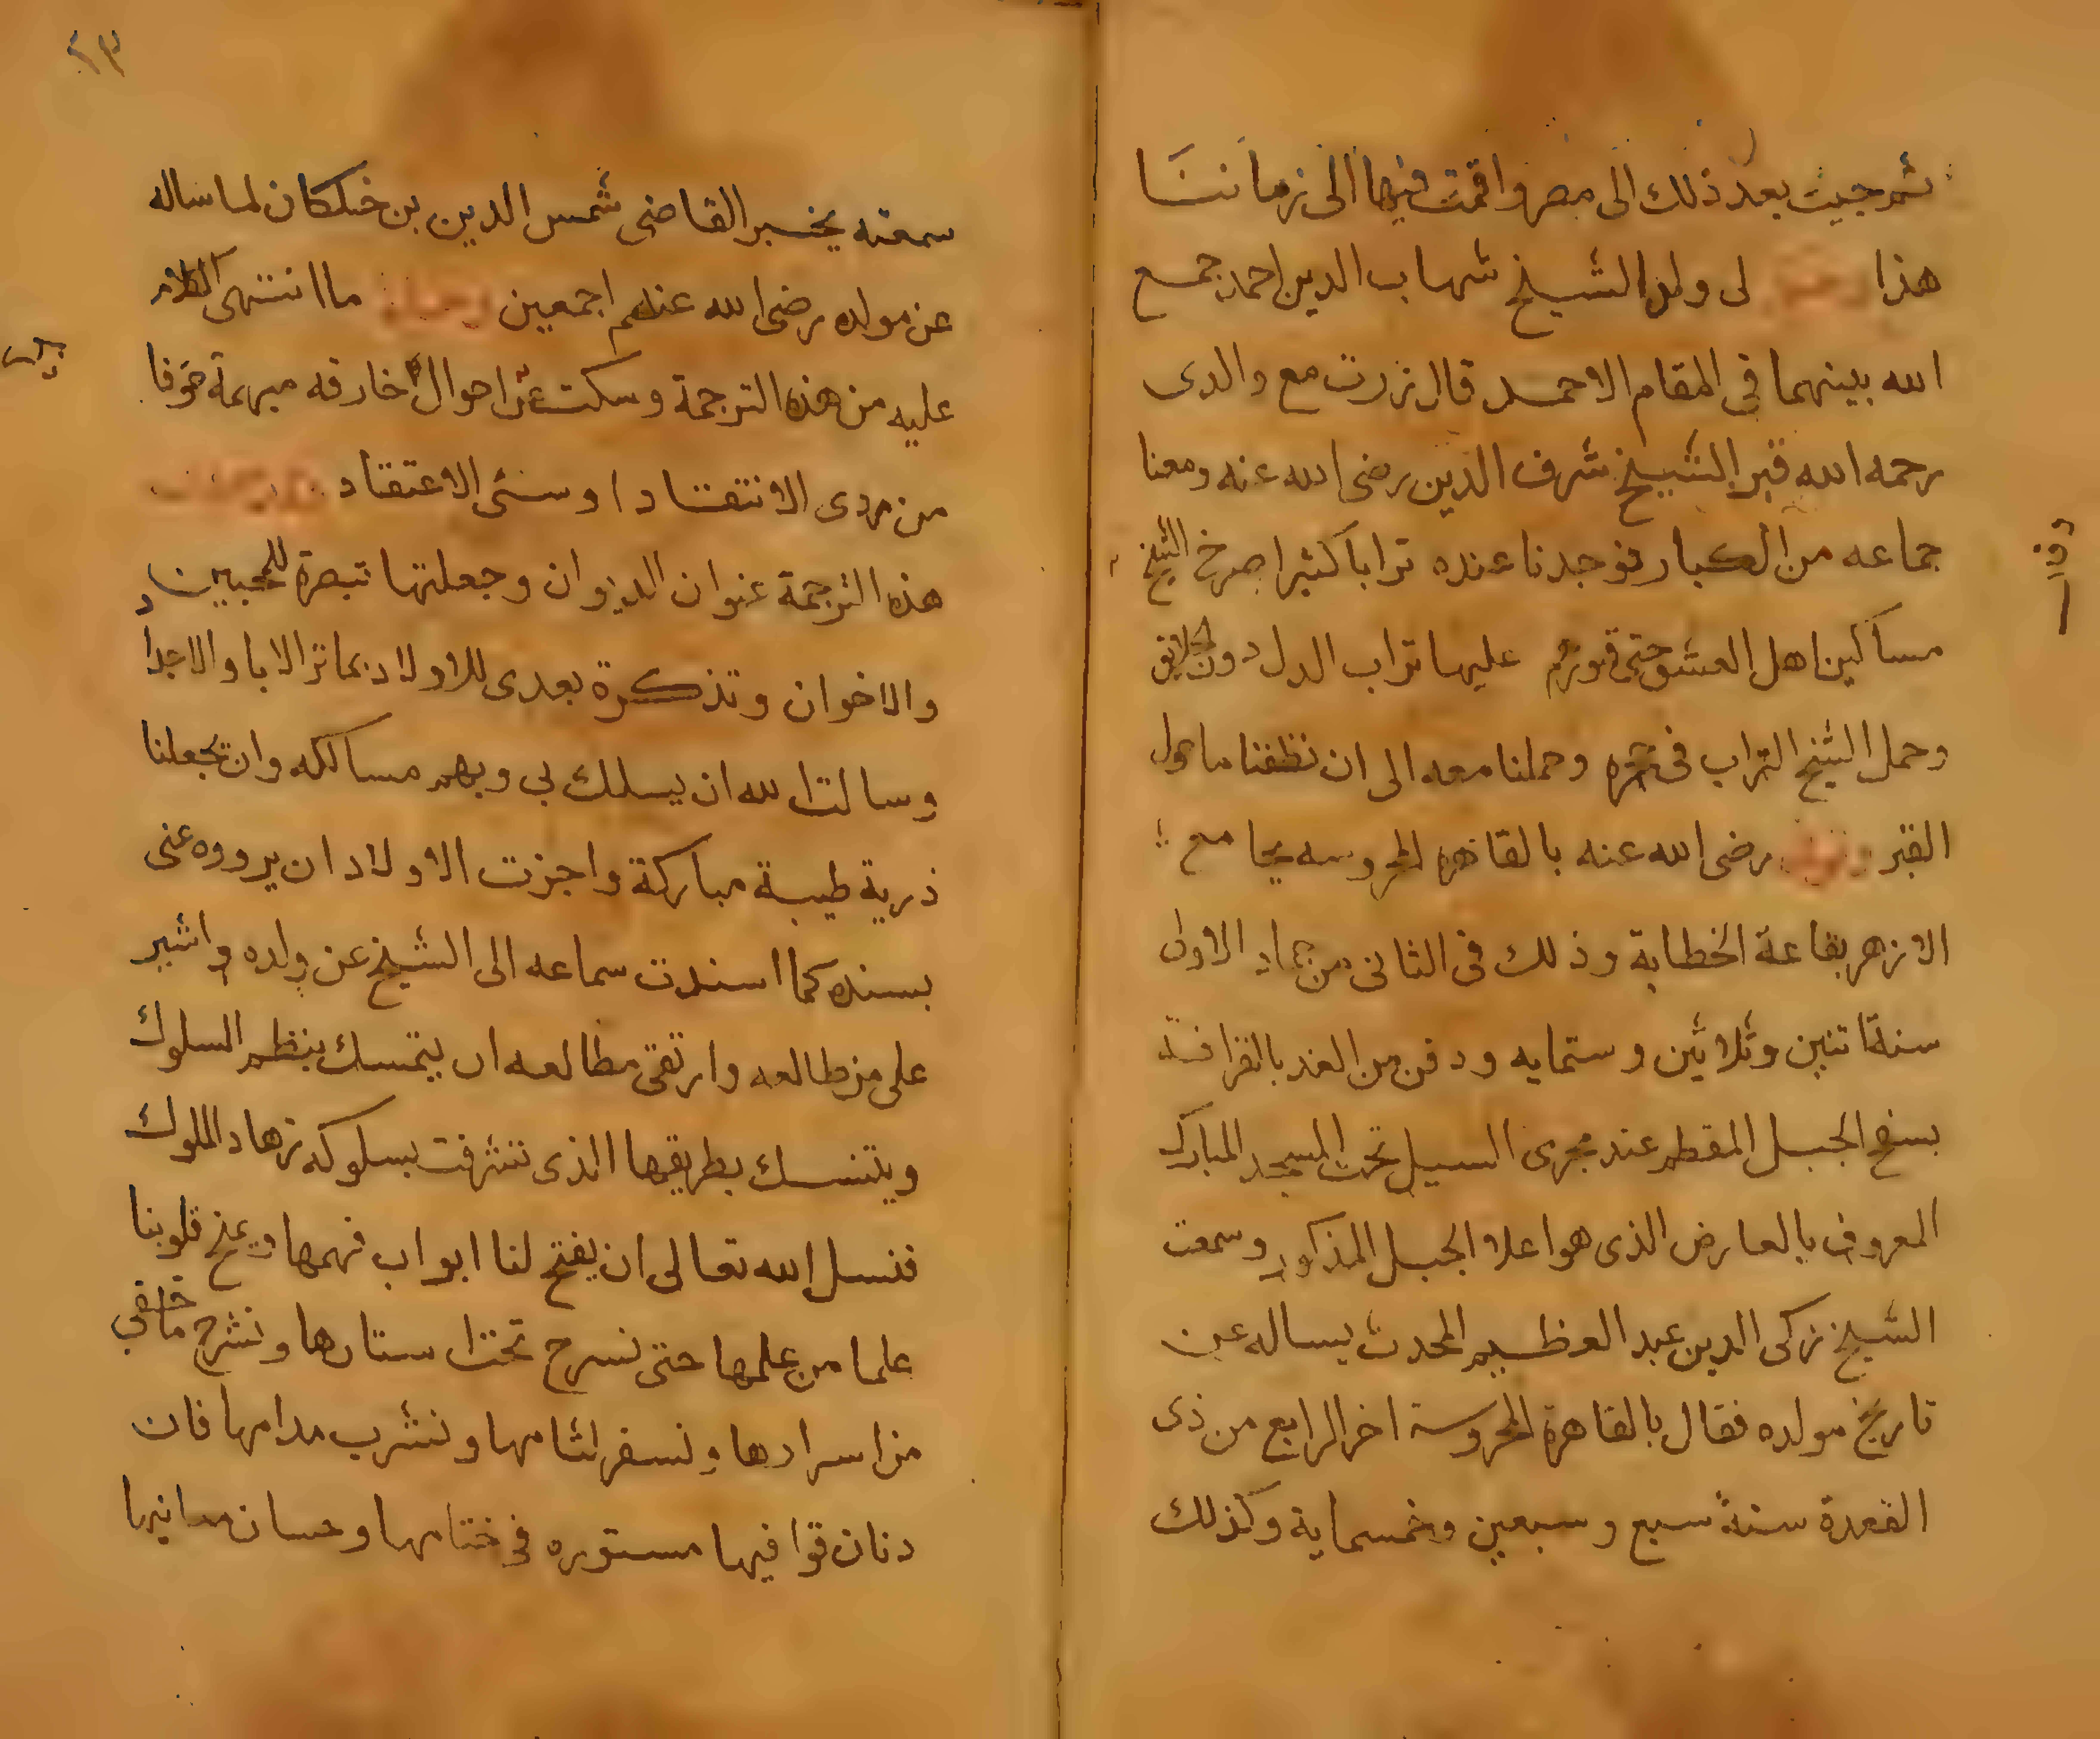 ثم جيت بعد ذلك الى مصر واقمت فيها الى زماننا
هذا لى ولد الشيخ شهاب الدين احمد جمع
الله بينهما في المقام الاحمد قال زرت مع والدى
رحمه الله قبر الشيخ شرف الدين رضى الله عنه ومعنا
جماعه من الكبار فوجدنا عنده ترابا كثيرا صرخ الشيخ
مساكين اهل العشق حتى قبورهم عليها تراب الدل دون الخلايق
وحمل الشيخ التراب فى حجره وحملنا معه الى ان نظفنا ما حول
القبر رضى الله عنه بالقاهره المحروسه بجامع
الازهر بقاعة الخطابة وذلك فى الثانى من جماد الاول
سنة اتنين وثلاثين وستمايه ودفن من الغد بالقرافة
بسفح الجبل المقطم عند مجرى السيل تحت المسجد المبارك
المعروف بالعارض الذى هو اعلا الجبل المذكور وسمعت
الشيخ زكى الدين عبد العظيم المحدث يساله عن
تاريخ مولده فقال بالقاهرة المحروسة اخر الرابع من ذى
القعدة سنة سبع وسبعين وخمسماية وكذلك
٢٣
سمعته يخبر القاضى شمس الدين بن خلكان لما ساله
عن مولده رضى الله عنهم اجمعين ما انتهى الكلام
عليه من هذه الترجمة وسكت عن احوال خارقه مبهمة خوفا
من ردى الانتقاد او سئى الاعتقاد
هذه الترجمة عنوان الديوان وجعلتها تبصرة للمحبين
والاخوان وتذكرة بعدى للاولاد بماثر الابا والاجدا
وسالت الله ان يسلك بى وبهم مسالكه وان يجعلنا
ذرية طيبة مباركة واجزت الاولاد ان يرووه عنى
بسنده كما اسندت سماعه الى الشيخ عن ولده واشير
على من طالعه وارتقى مطالعه ان يتمسك بنظم السلوك
ويتنسك بطريقها الذى تشرفت بسلوكه زهاد الملوك
فنسل الله تعالى ان يفتح لنا ابواب فهمها ويمنح قلوبنا
علما من علمها حتى نسرح تحت استارها ونشرح ما خفى
من اسرارها ونسفر لثامها ونشرب مدامها فان
دنان قوافيها مستوره فى ختامها وحسان معانيها